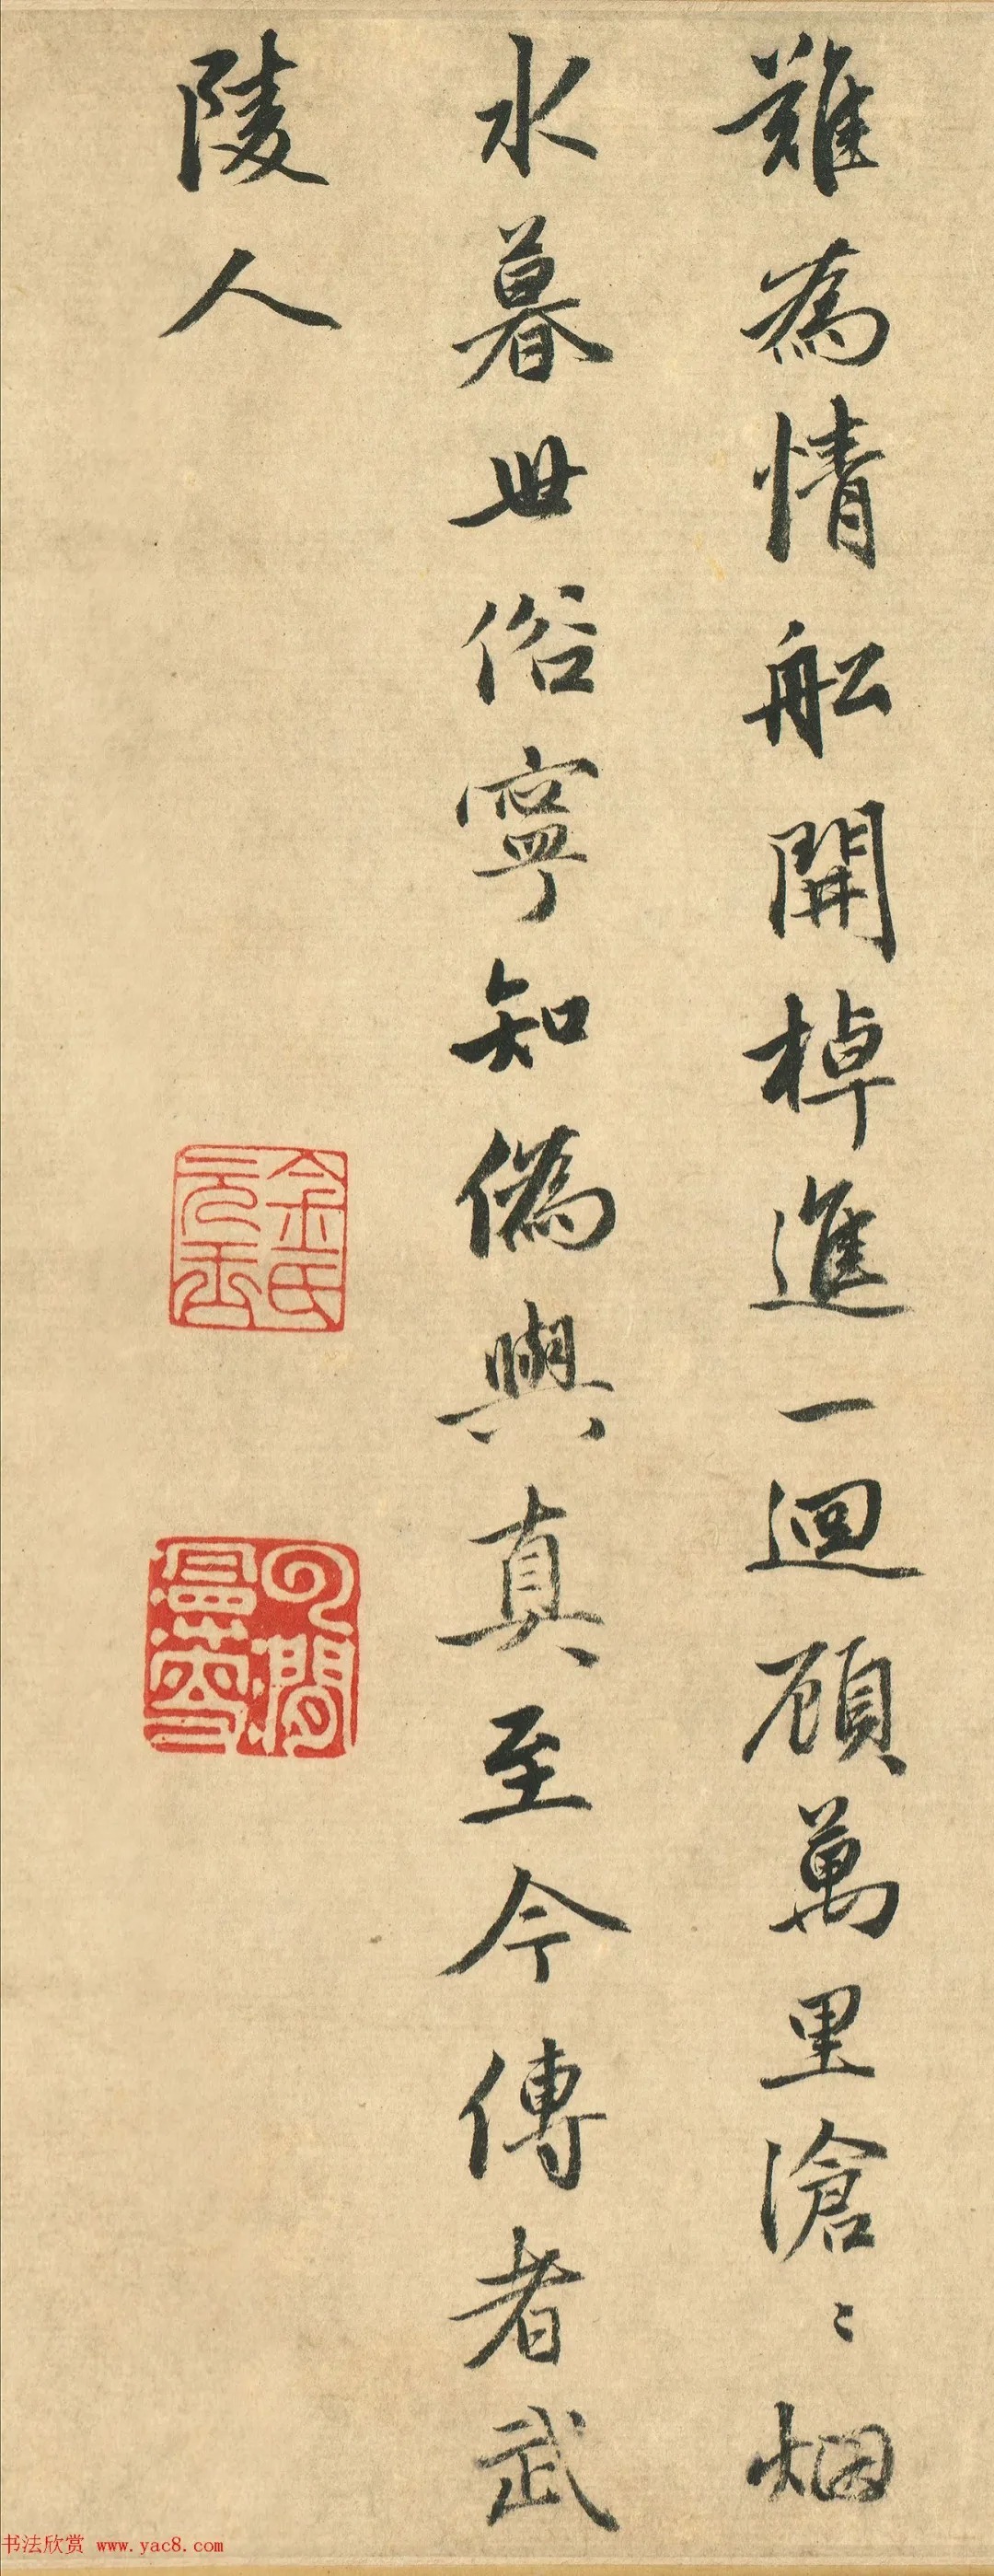 難為情舩開棹進一迴顧萬里滄〻烟
水暮世俗寧知偽與真至今傳者武
陵人
書法欣赏 www.yac8.com